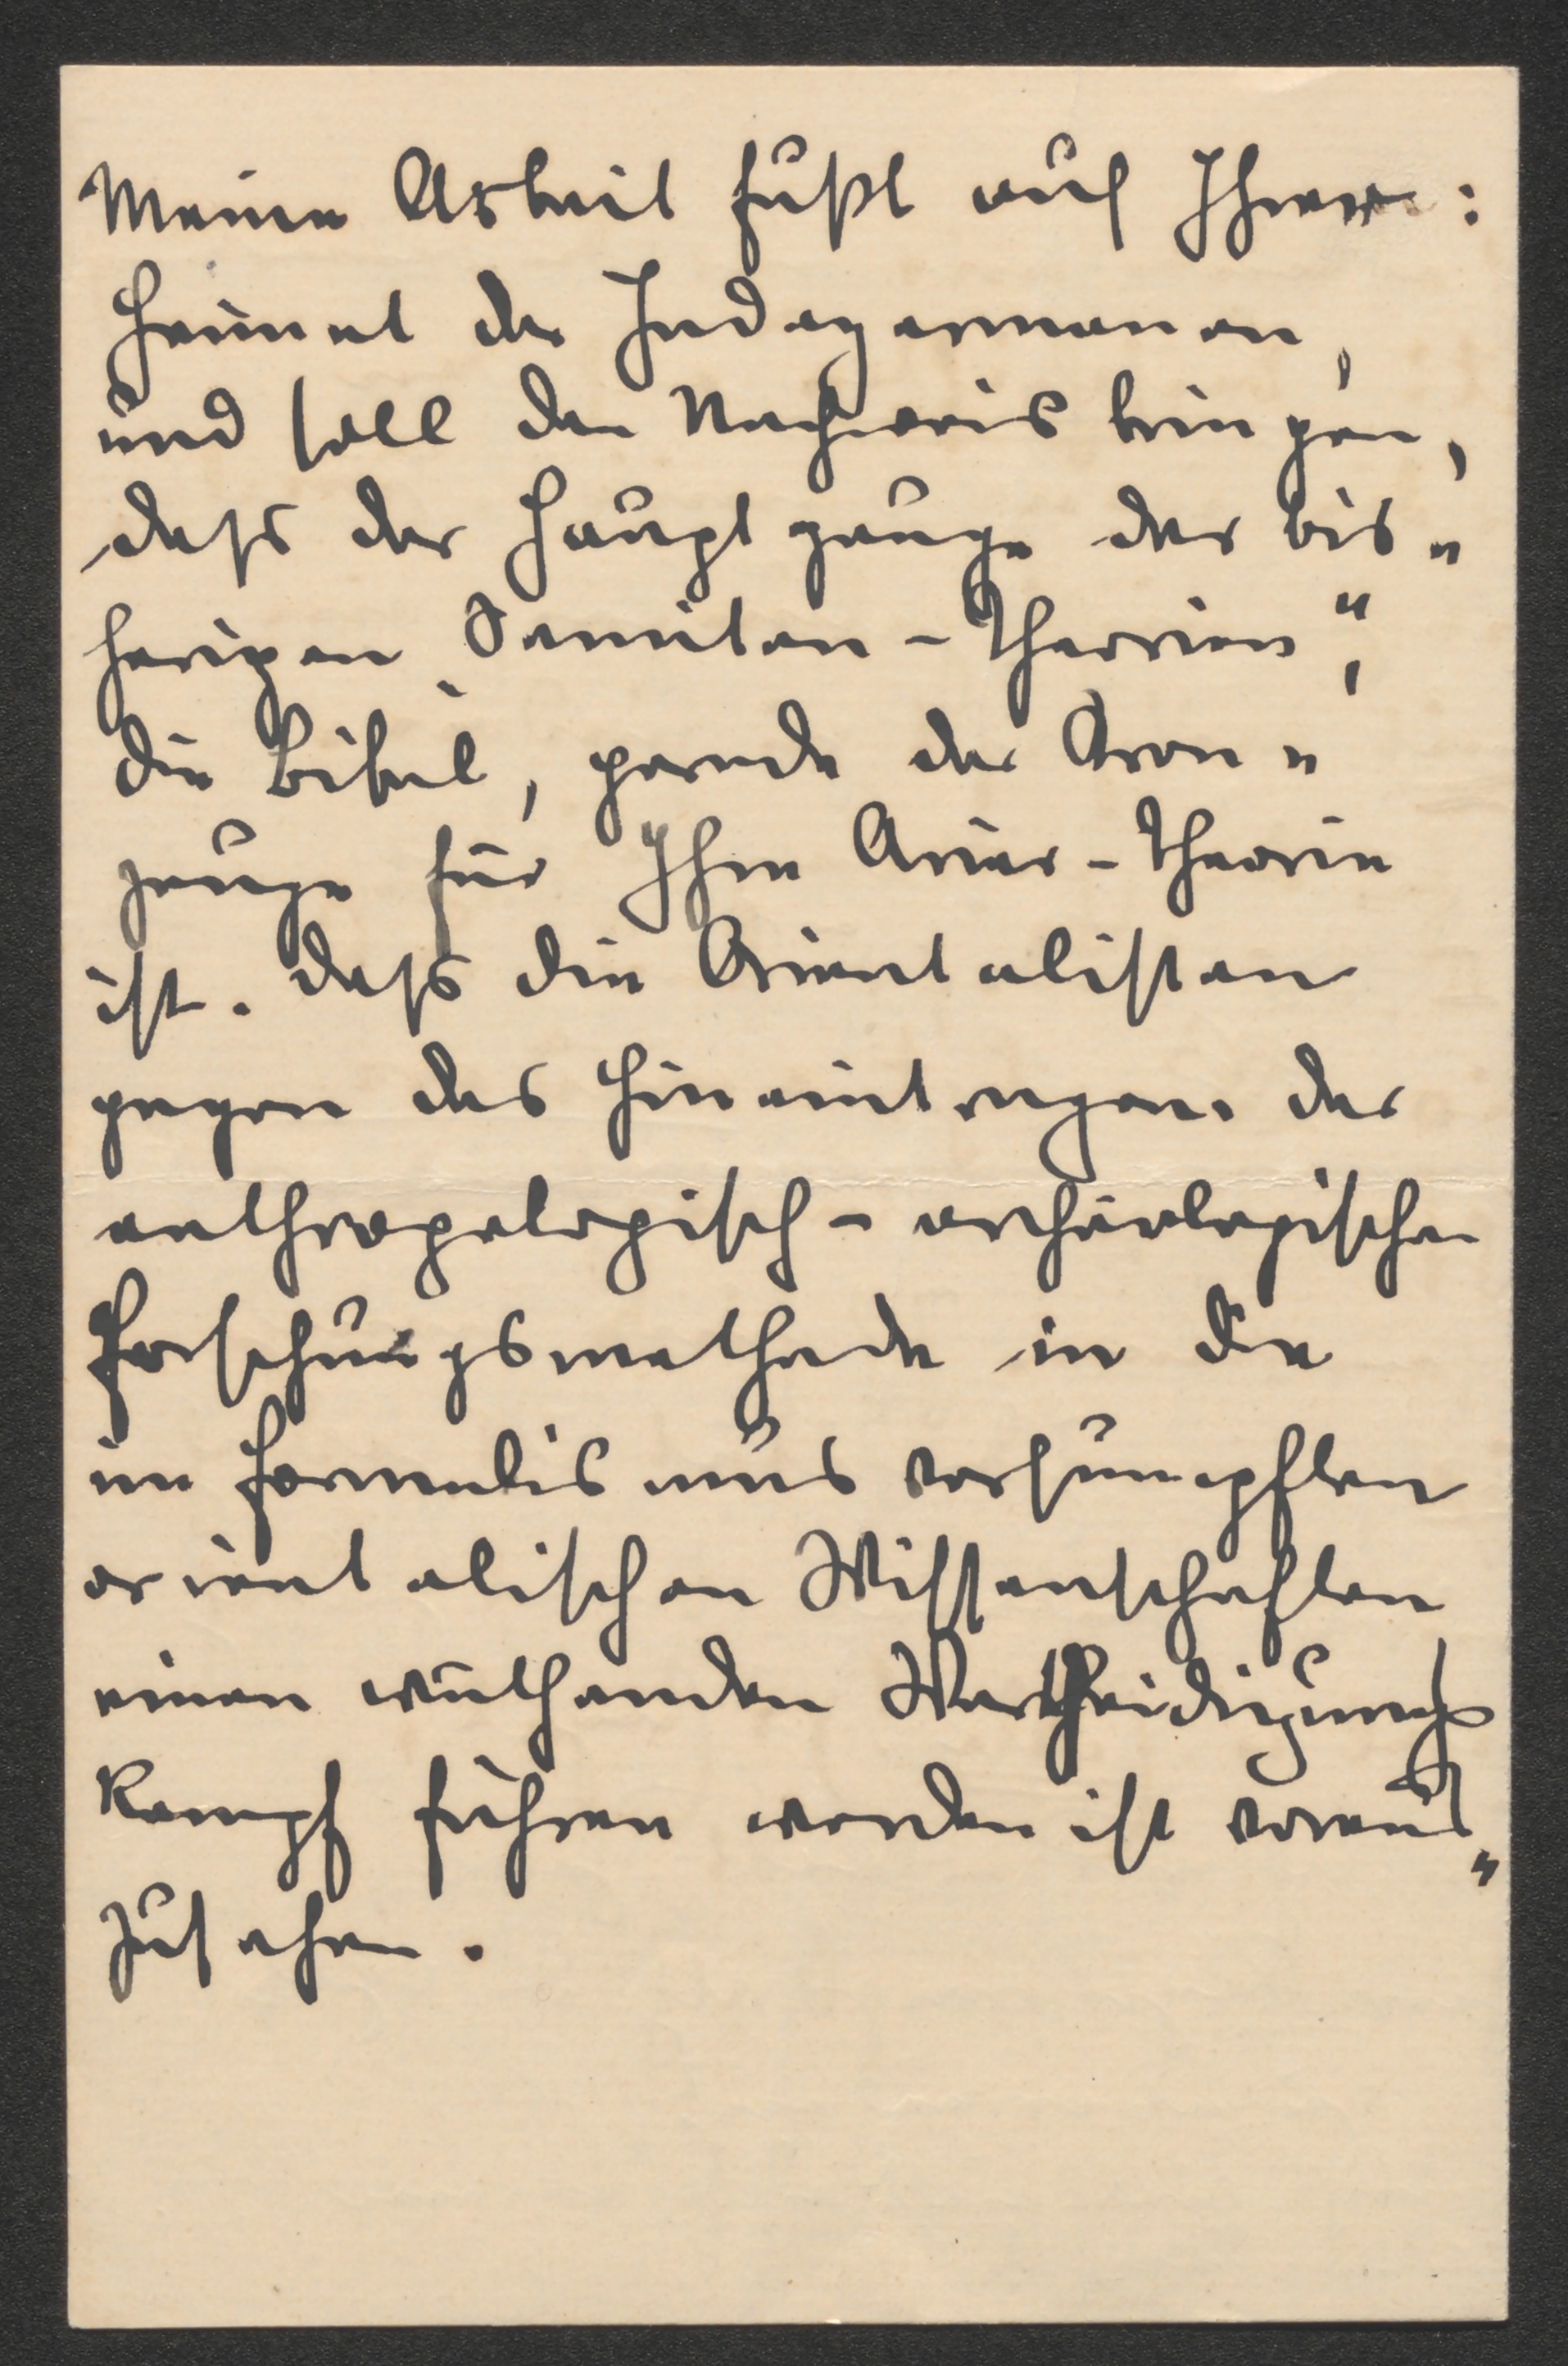 Meine Arbeit fußt auf Ihrer:
Heimat der Indogermanen,
und soll den Nachweis bringen,
dass der Hauptzeuge der bis„
herigen „Semiten-Theorien“,
die Bibel, gerade der Kron„
zeuge für Ihre Arier-Theorie
ist. Dass die Orientalisten
gegen das Hineintragen der
anthropologisch-archäologischen
Forschungsmethode in die
im Formalismus versumpften
orientalischen Wissenschaften
einen wüthenden Vertheidigungs
Kampf führen werden ist voraus„
zusehen.